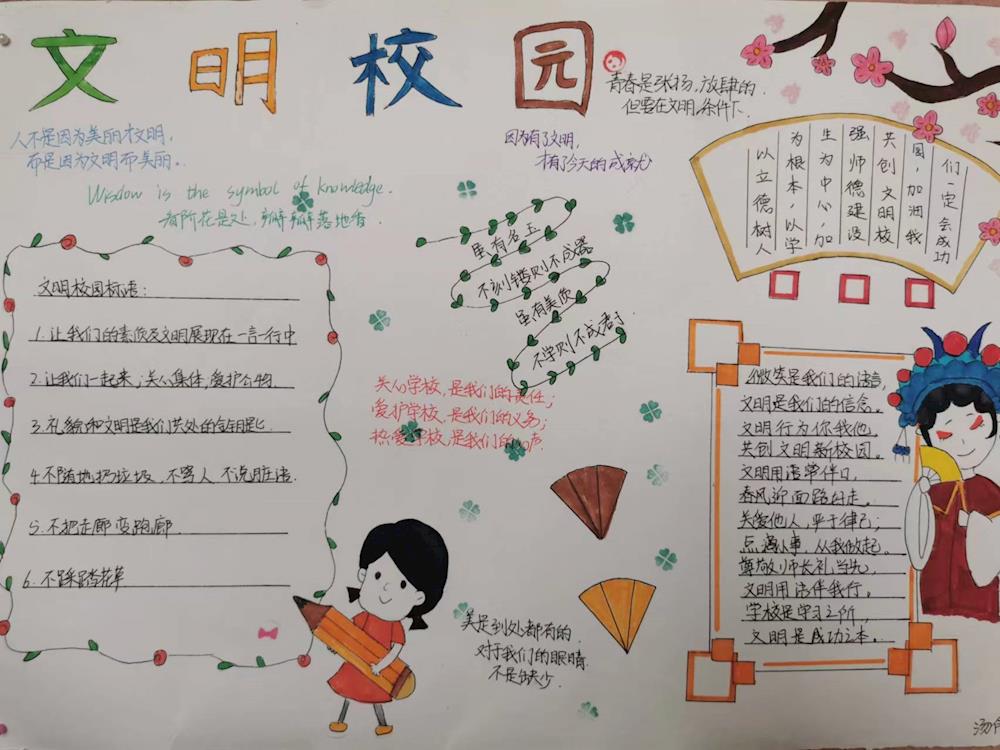 文明校园
人不是因为美丽才文明,
而是因为文明而美丽.
Wisdow is the symbol of knowledge.
有所花是处,
落地香.
因为有了文明,
才有了今天的成就
青春是张扬,放肆的.
但要在文明条件下.
以立德树人
为根本,以学
生为中心,加
强师德建设
共创文明校
园,加油我
们一定会成功
虽有名玉
不刻错则不成器
虽有美质
不学则不成君子
文明校园标语:
1.让我们的素质及文明展现在一言一行中
2.让我们一起来,关心集体,爱护公物.
3.礼貌和文明是我们共处的金钥匙.
4.不随地扔垃圾,不骂人 不说脏话.
5.不把走廊变跑廊.
6.不踩踏花草
关心学校,是我们的责任;
爱护学校,是我们的义务;
热爱学校,是我们的心声
美是到处都有的.
对于我们的眼睛.
不是缺少.
微笑是我们的语言,
文明是我们的信念。
文明行为你我他,
共创文明新校园。
文明用语常伴口,
春风迎面路好走。
关爱他人,严于律己;
点滴小事,从我做起。
尊敬师长礼当先,
文明用语伴我行。
学校是学习之所,
文明是成功之本.
汤